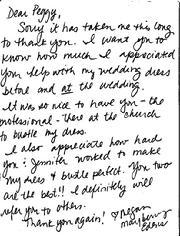 Dear Peggy,
Sorry it has taken me this long
to thank you. I want you to
know how much I appreciated
your help with my wedding dress
before and at the wedding.
It was so nice to have you - the
professional - there at the church
to bustle my dress.
I also appreciate how hard
you & Jennifer worked to make
my dress & bustle perfect. You two
are the best!! I definitely will
refer you to others.
Thank you again! Megan